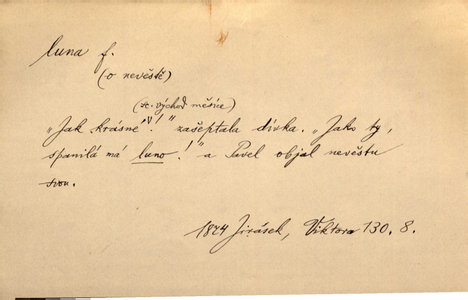 luna f.
(o nevěstě)
(sc. východ měsíce)
„Jak krásné!" zašeptala dívka. „Jako ty,
spanilá má luno!" a Pavel objal nevěstu
svou.
1874 Jirásek, Viktora 130. 8.